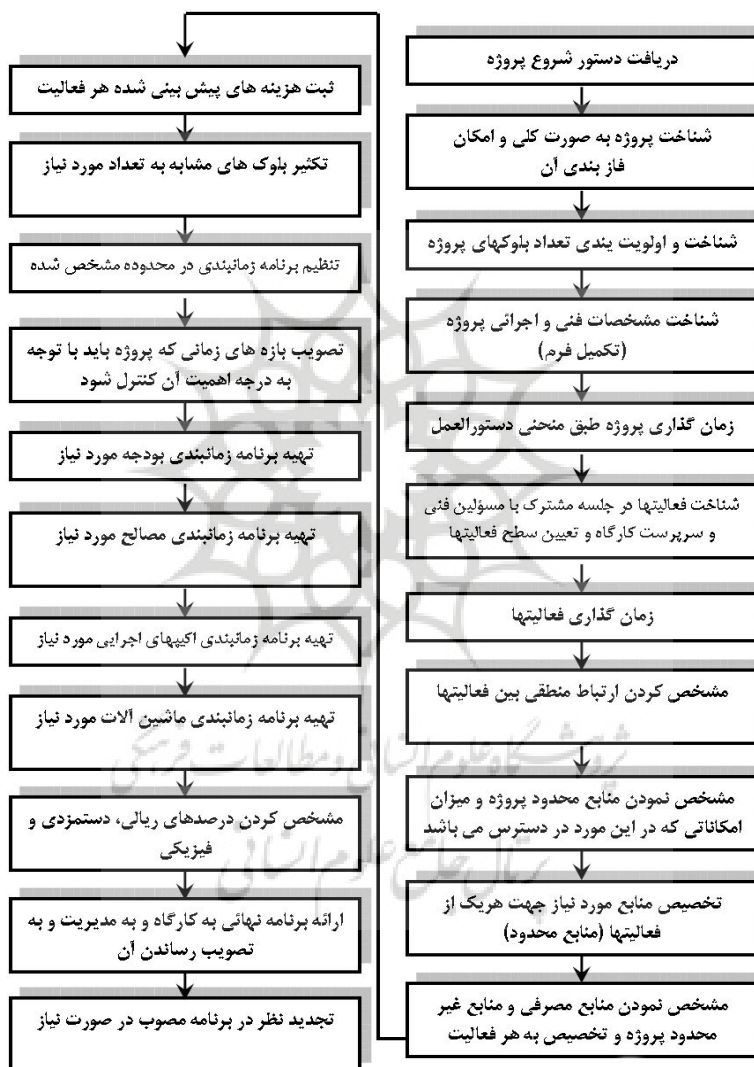 دریافت دستور شروع پروژه
شناخت پروژه به صورت کلی و امکان
فاز بندی آن
شناخت و اولویت یندی تعداد بلوکهای پروژه
شناخت مشخصات فنی و اجرائی پروژه
(تکمیل فرم)
زمان گذاری پروژه طبق منحنی دستورالعمل
شناخت فعالیتها در جلسه مشترک با مسؤلین فنی
و سرپرست کارگاه و تعیین سطح فعالیتها
زمان گذاری فعالیتها
مشخص کردن ارتباط منطقی بین فعالیتها
مشخص نمودن منابع محدود پروژه و میزان
امکاناتی که در این مورد در دسترس می باشد
تخصیص منابع مورد نیاز جهت هریک از
فعالیتها (منابع محدود)
مشخص نمودن منابع مصرفی و منابع غیر
محدود پروژه و تخصیص به هر فعالیت
ثبت هزینه های پیش بینی شده هر فعالیت
تکثیر بلوک های مشابه به تعداد مورد نیاز
تنظیم برنامه زمانبندی در محدوده مشخص شده
تصویب بازه های زمانی که پروژه باید با توجه
به درجه اهمیت آن کنترل شود
تهیه برنامه زمانبندی بودجه مورد نیاز
تهیه برنامه زمانبندی مصالح مورد نیاز
تهیه برنامه زمانبندی اکیپهای اجرایی مورد نیاز
تهیه برنامه زمانبندی ماشین آلات مورد نیاز
مشخص کردن درصدهای ریالی، دستمزدی و
فیزیکی
ارائه برنامه نهائی به کارگاه و به مدیریت و به
تصویب رساندن آن
تجدید نظر در برنامه مصوب در صورت نیاز
پژوهشگاه علوم انسانی و مطالعات فرهنگی
پرتال جامع علوم انسانی